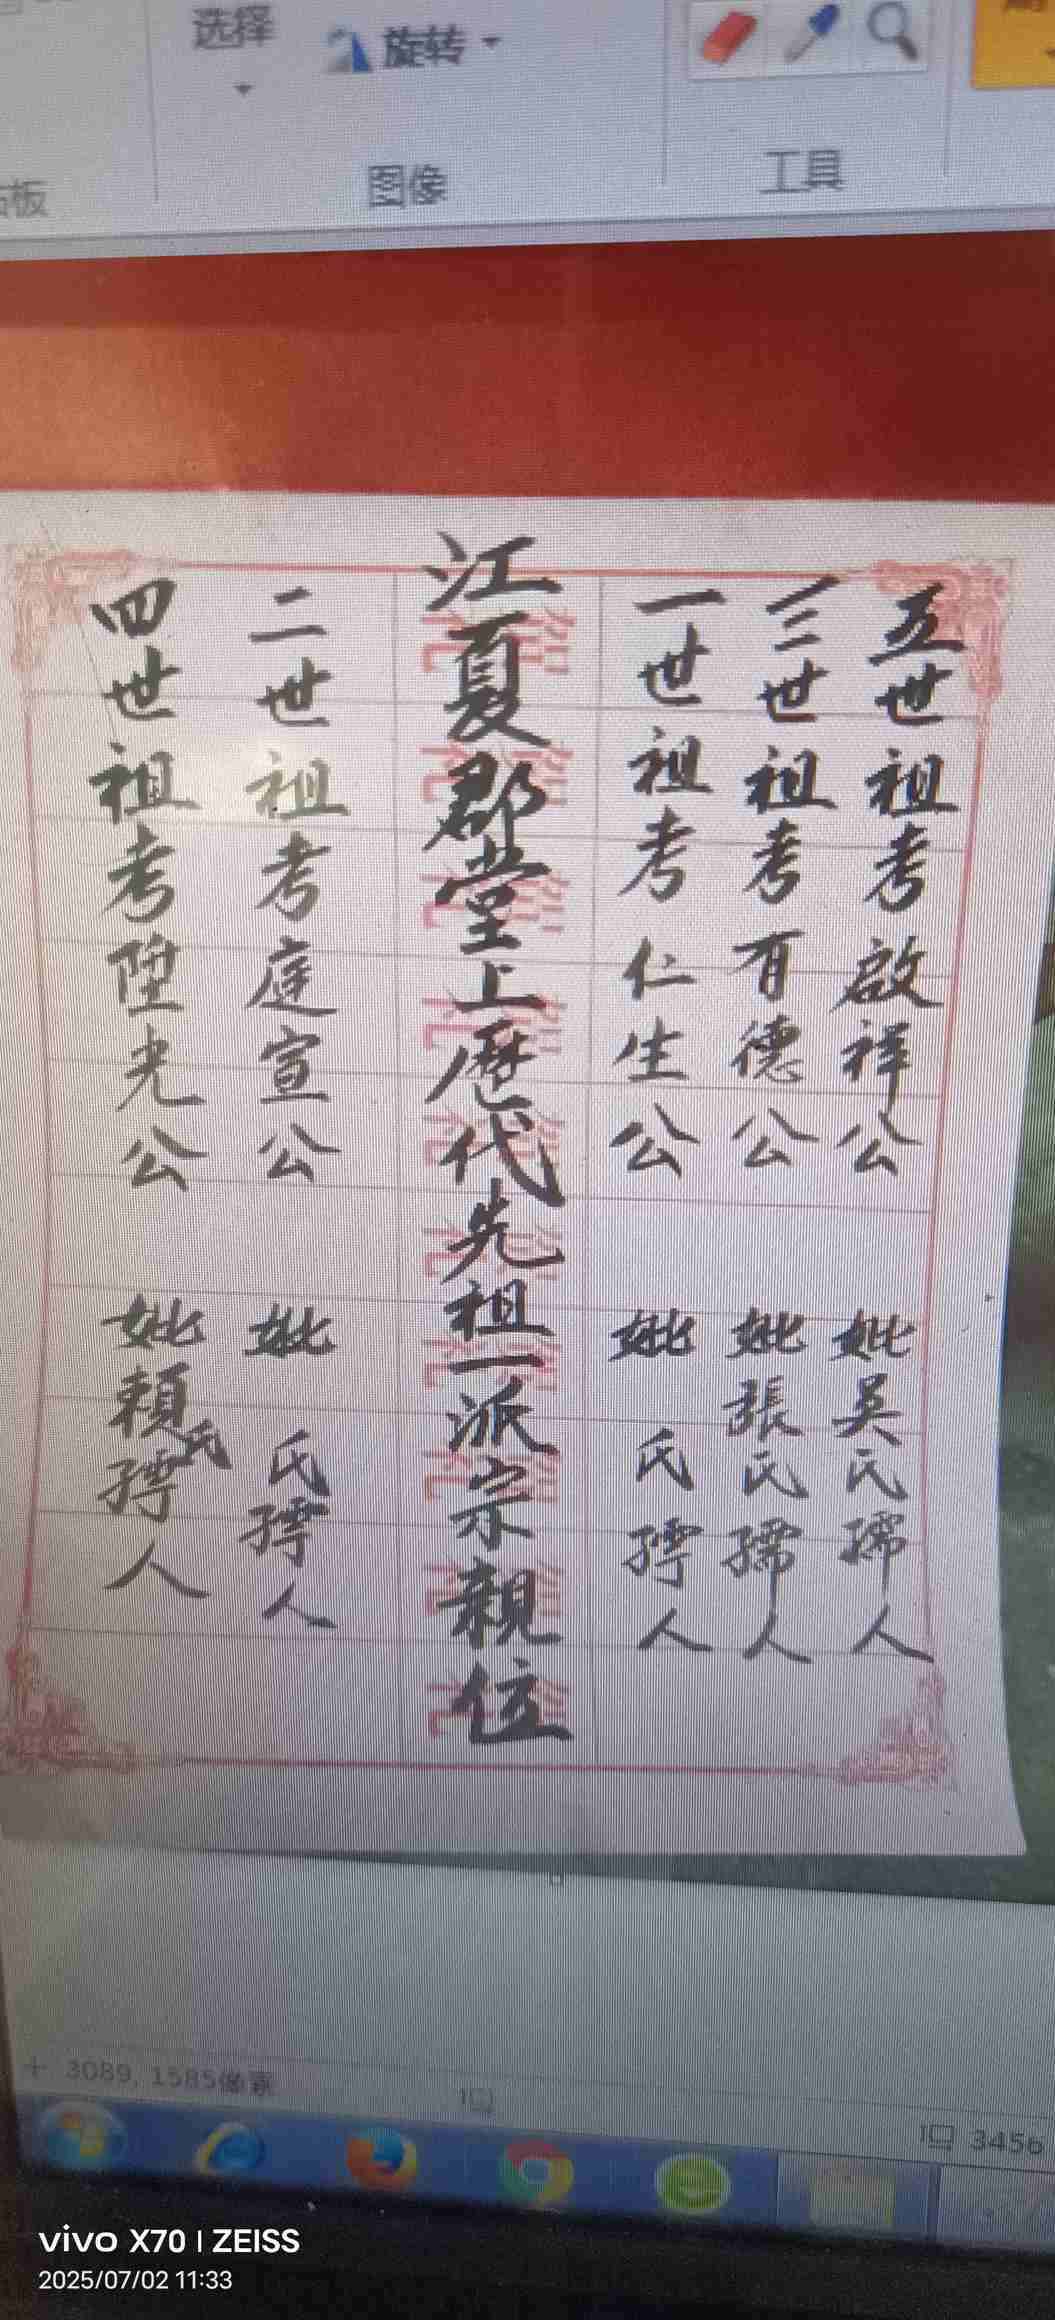 选择
旋转
图像
工具
板
五世祖考啟祥公 妣吴氏孺人
三世祖考有德公 妣張氏孺人
一世祖考仁生公 妣 氏孺人
江夏郡堂上歷代先祖一派宗親位
二世祖考庭宣公 妣 氏孺人
四世祖考陞光公 妣賴氏孺人
3089, 1585像素
3456
vivo X70 | ZEISS
2025/07/02 11:33